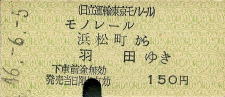 (日立運輸東京モノレール)
モノレール
浜松町から
羽田ゆき
下車前途無効
発売当日限り有効 150円
46.-6.-5